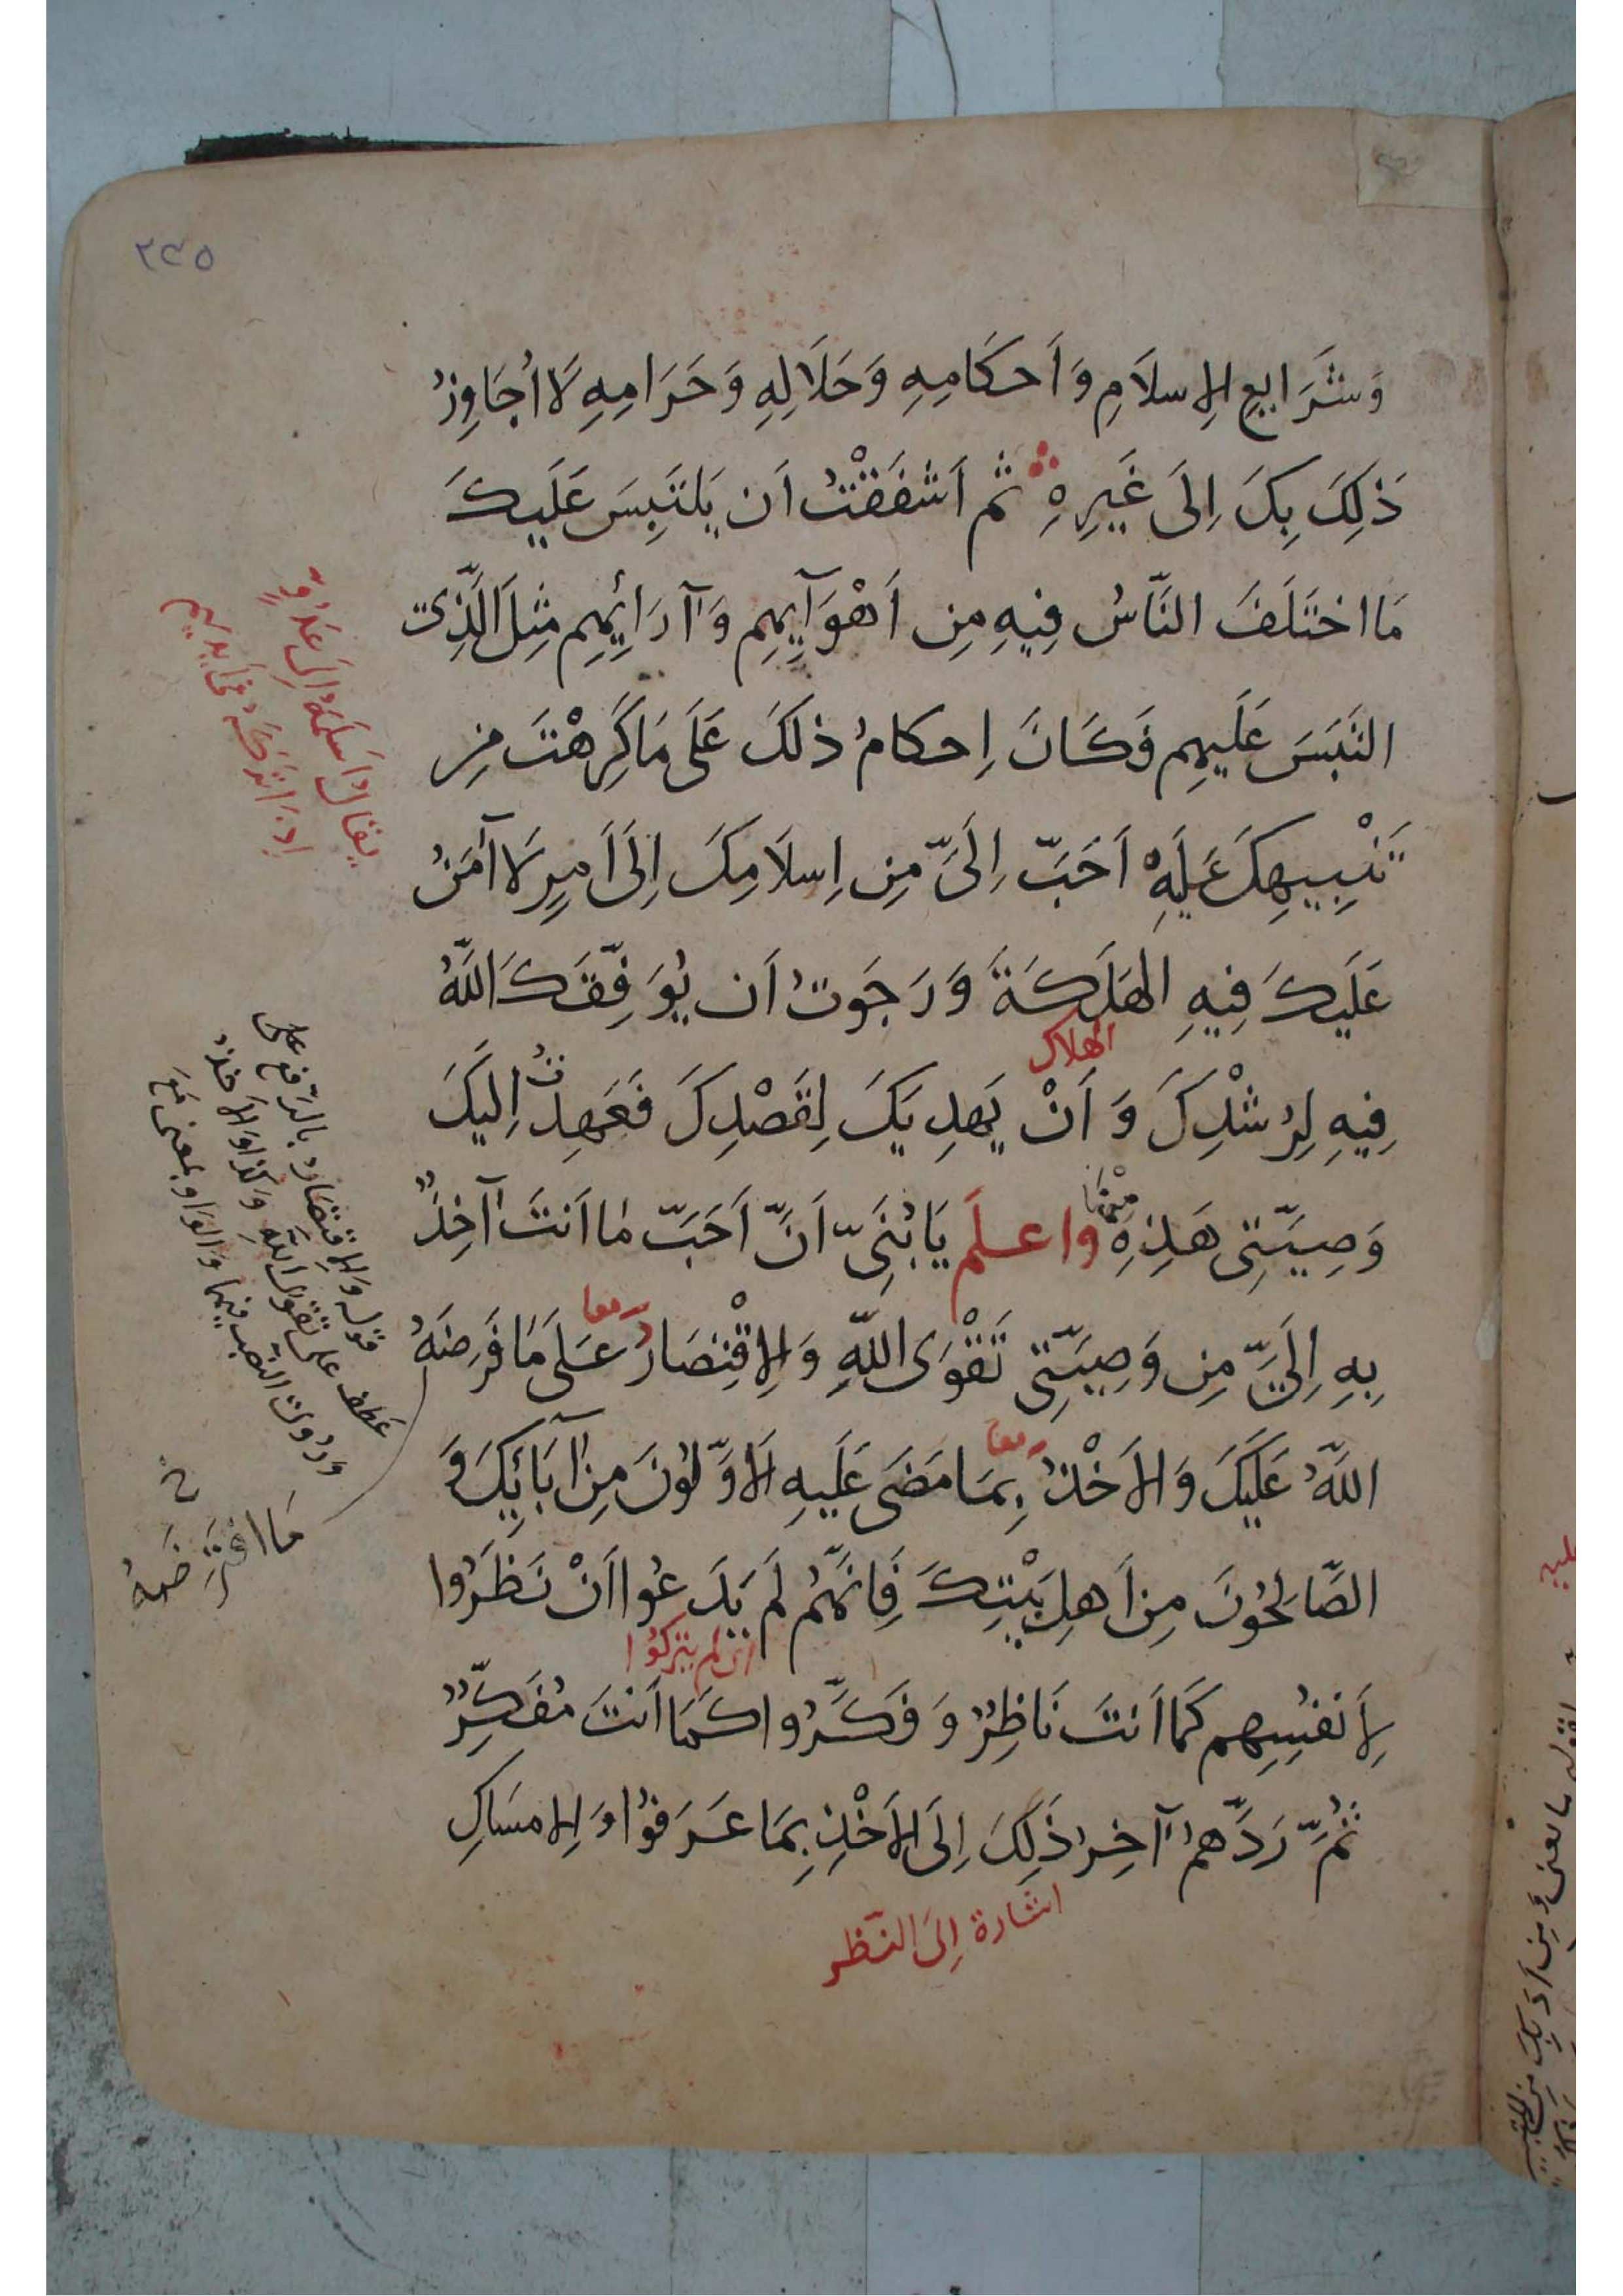 ٢٤٥
وَشَرَايِعِ الإِسلَامِ وَأَحكَامِهِ وَحَلَالِهِ وَحَرَامِهِ لَا أُجَاوِزُ
ذَلِكَ بِكَ إِلَى غَيرِهِ ثُم أَشفَقْتُ أَن يَلتَبِسَ عَلَيكَ
مَا اختَلَفَ النَّاسُ فِيهِ مِن أَهْوَآيِهِم وَآرَائِهِم مِثلَ الَّذِي
التَبَسَ عَلَيهِم فَكَانَ إِحكامُ ذلكَ عَلَى مَا كَرِهْتَ مِن
تَنْبِيهِكَ عَلَيهِ أَحَبَّ إِلَيَّ مِن إِسلَامِكَ إِلَى أَمرٍ لَا آمَنُ
عَلَيكَ فِيهِ الهَلَكَةَ وَرَجَوتُ أَن يُوَفِّقَكَ اللَّهُ
الهلاك
فِيهِ لِرُشْدِكَ وَأَنْ يَهدِيَكَ لِقَصْدِكَ فَعَهِدتُ إِلَيكَ
وَصِيَّتِي هَذِهِ واعلَم يَا بُنَيَّ أَنَّ أَحَبَّ مَا أَنتَ آخِذٌ
بِهِ إِلَيَّ مِن وَصِيَّتِي تَقْوَى اللَّهِ وَالإِقْتِصَارُ عَلَى مَا فَرَضَهُ
معا
اللَّهُ عَلَيكَ وَالأَخْذُ بِمَا مَضَى عَلَيهِ الأَوَّلُونَ مِن آبَائِكَ وَ
معا
الصَّالِحُونَ مِن أَهلِ بَيْتِكَ فَإِنَّهُم لَم يَدَعُوا أَنْ نَظَرُوا
أي لم يتركوا
لِأَنفُسِهِم كَمَا أَنتَ نَاظِرٌ وَفَكَّرُوا كَمَا أَنتَ مُفَكِّرٌ
ثُمَّ رَدَّهُم آخِرُ ذَلِكَ إِلَى الأَخْذِ بِمَا عَرَفُوا وَالإِمسَاكِ
اشارة إِلَى النَّظر
يقال أسلمه إلى عدوه
إذا تركه في أيديهم
قوله والإقتصار بالرفع على
عطف على تقوى الله وكذا والأخذ
وروى النصب فيهما والواو بمعنى مع
مَا افتَرَضَهُ